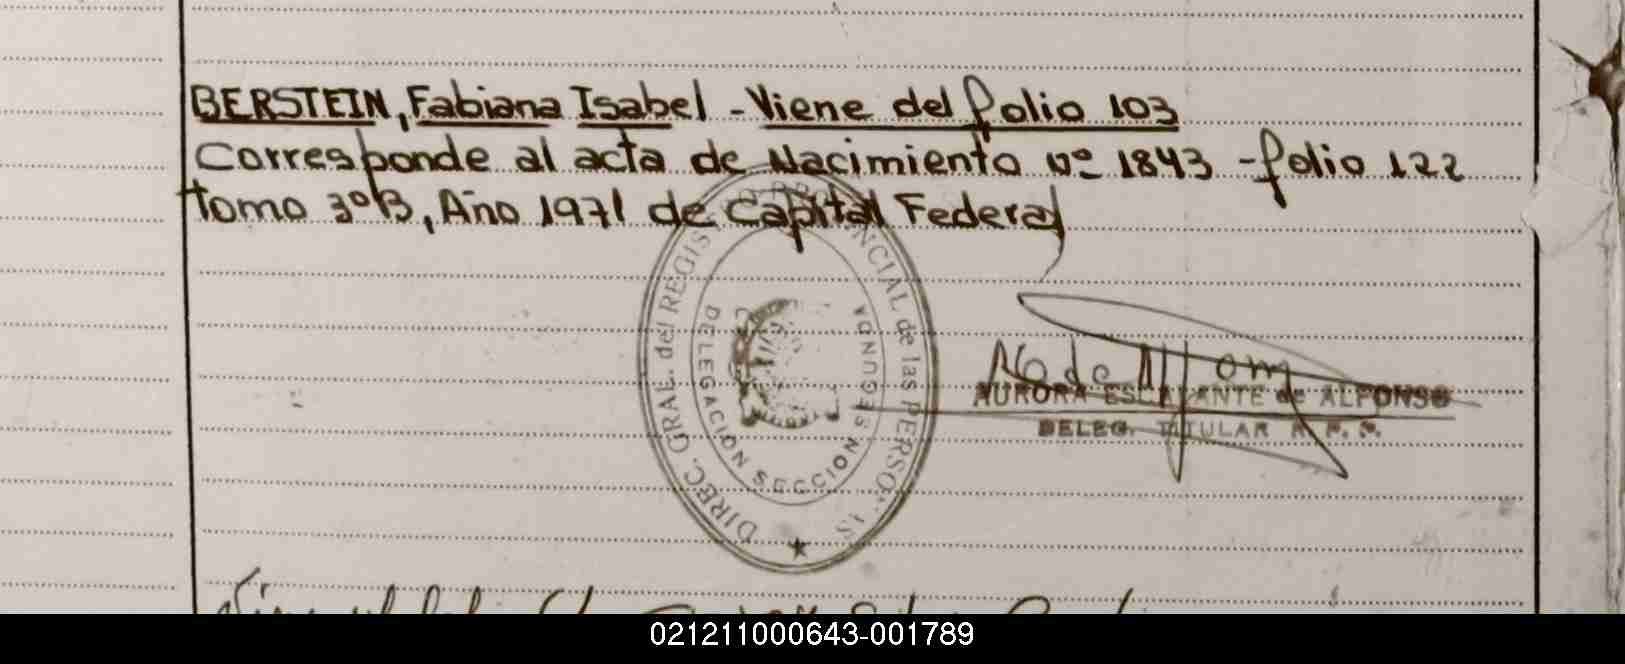 BERSTEIN, Fabiana Isabel - Viene del folio 103
Corresponde al acta de Nacimiento Nº 1843 - folio 122
tomo 3º B, Año 1971 de Capital Federal
DIREC. GRAL. del REGISTRO PROVINCIAL de las PERSONAS
DELEGACION SECCION SEGUNDA
AURORA ESCALANTE de ALFONSO
DELEG. TITULAR R. P. P.
021211000643-001789